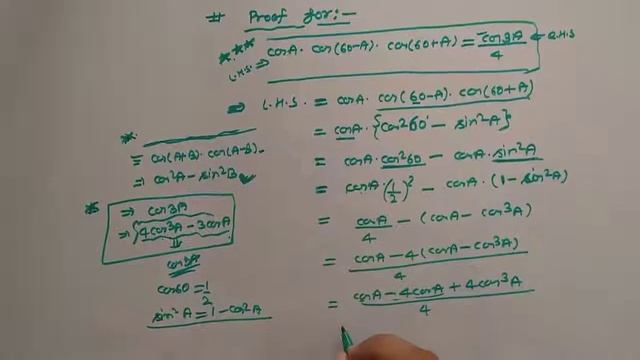 # Proof for:-
*** cosA. cos(60-A). cos(60+A) = cos3A/4 ← R.H.S
L.H.S. ⇒
⇒ L.H.S. = cosA. cos(60-A). cos(60+A)
= cosA. {cos²60° - sin²A}
= cosA. cos²60 - cosA. sin²A
= cosA.(1/2)² - cosA. (1-sin²A)
= cosA/4 - (cosA - cos³A)
= cosA - 4(cosA - cos³A)/4
= cosA - 4cosA + 4cos³A/4
*
= cos(A+B). cos(A-B).
⇒ cos²A - sin²B
* ⇒ cos3A
⇒ 4cos³A - 3cosA
cos3A
cos60 = 1/2
sin²A = 1 - cos²A